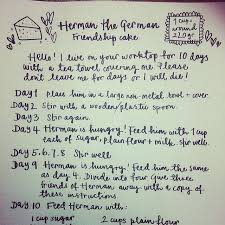 Herman the German
Friendship cake
1 cup
around
220gr.
Hello! I live on your worktop for 10 days
with a tea towel covering me. Please
don't leave me for days or I will die!
Day 1 Place him in a large non-metal bowl + cover
Day 2 Stir with a wooden/plastic spoon.
Day 3 Stir again.
Day 4 Herman is hungry! Feed him with 1 cup
each of sugar, plain flour + milk. Stir well.
Day 5, 6, 7, 8 Stir well
Day 9 Herman is hungry! Feed him the same
as day 4. Divide into four. Give three
friends of Herman away with a copy of
these instructions.
Day 10 Feed Herman with:
1 cup sugar 2 cups plain flour